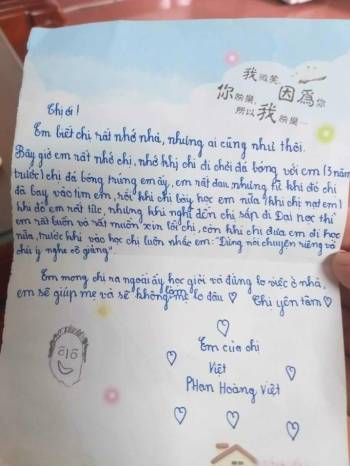 我微笑
因為你
你快樂,
所以我快樂...
Chị ơi!
Em biết chị rất nhớ nhà, nhưng ai cũng như thôi.
Bây giờ em rất nhớ chị, nhớ khi chị đi chơi đá bóng với em (3 năm
trước) chị đá bóng trúng em ấy, em rất đau, nhưng từ khi đó chị
đã bay vào tim em, rồi khi chị bày học em nữa (khi chị nạt em)
khi đó em rất tức, nhưng khi nghĩ đến chị sắp đi Đại học thì
em rất buồn và rất muốn xin lỗi chị, còn khi chị đưa em đi học
nữa, trước khi vào học chị luôn nhắc em: "Đừng nói chuyện riêng và
chú ý nghe cô giảng".
Em mong chị ra ngoài ấy học giỏi và đừng lo việc ở nhà,
em sẽ giúp mẹ và sẽ không làm mẹ lo đâu ♡ Chị yên tâm ♡
Em của chị
Việt
Phan Hoàng Việt